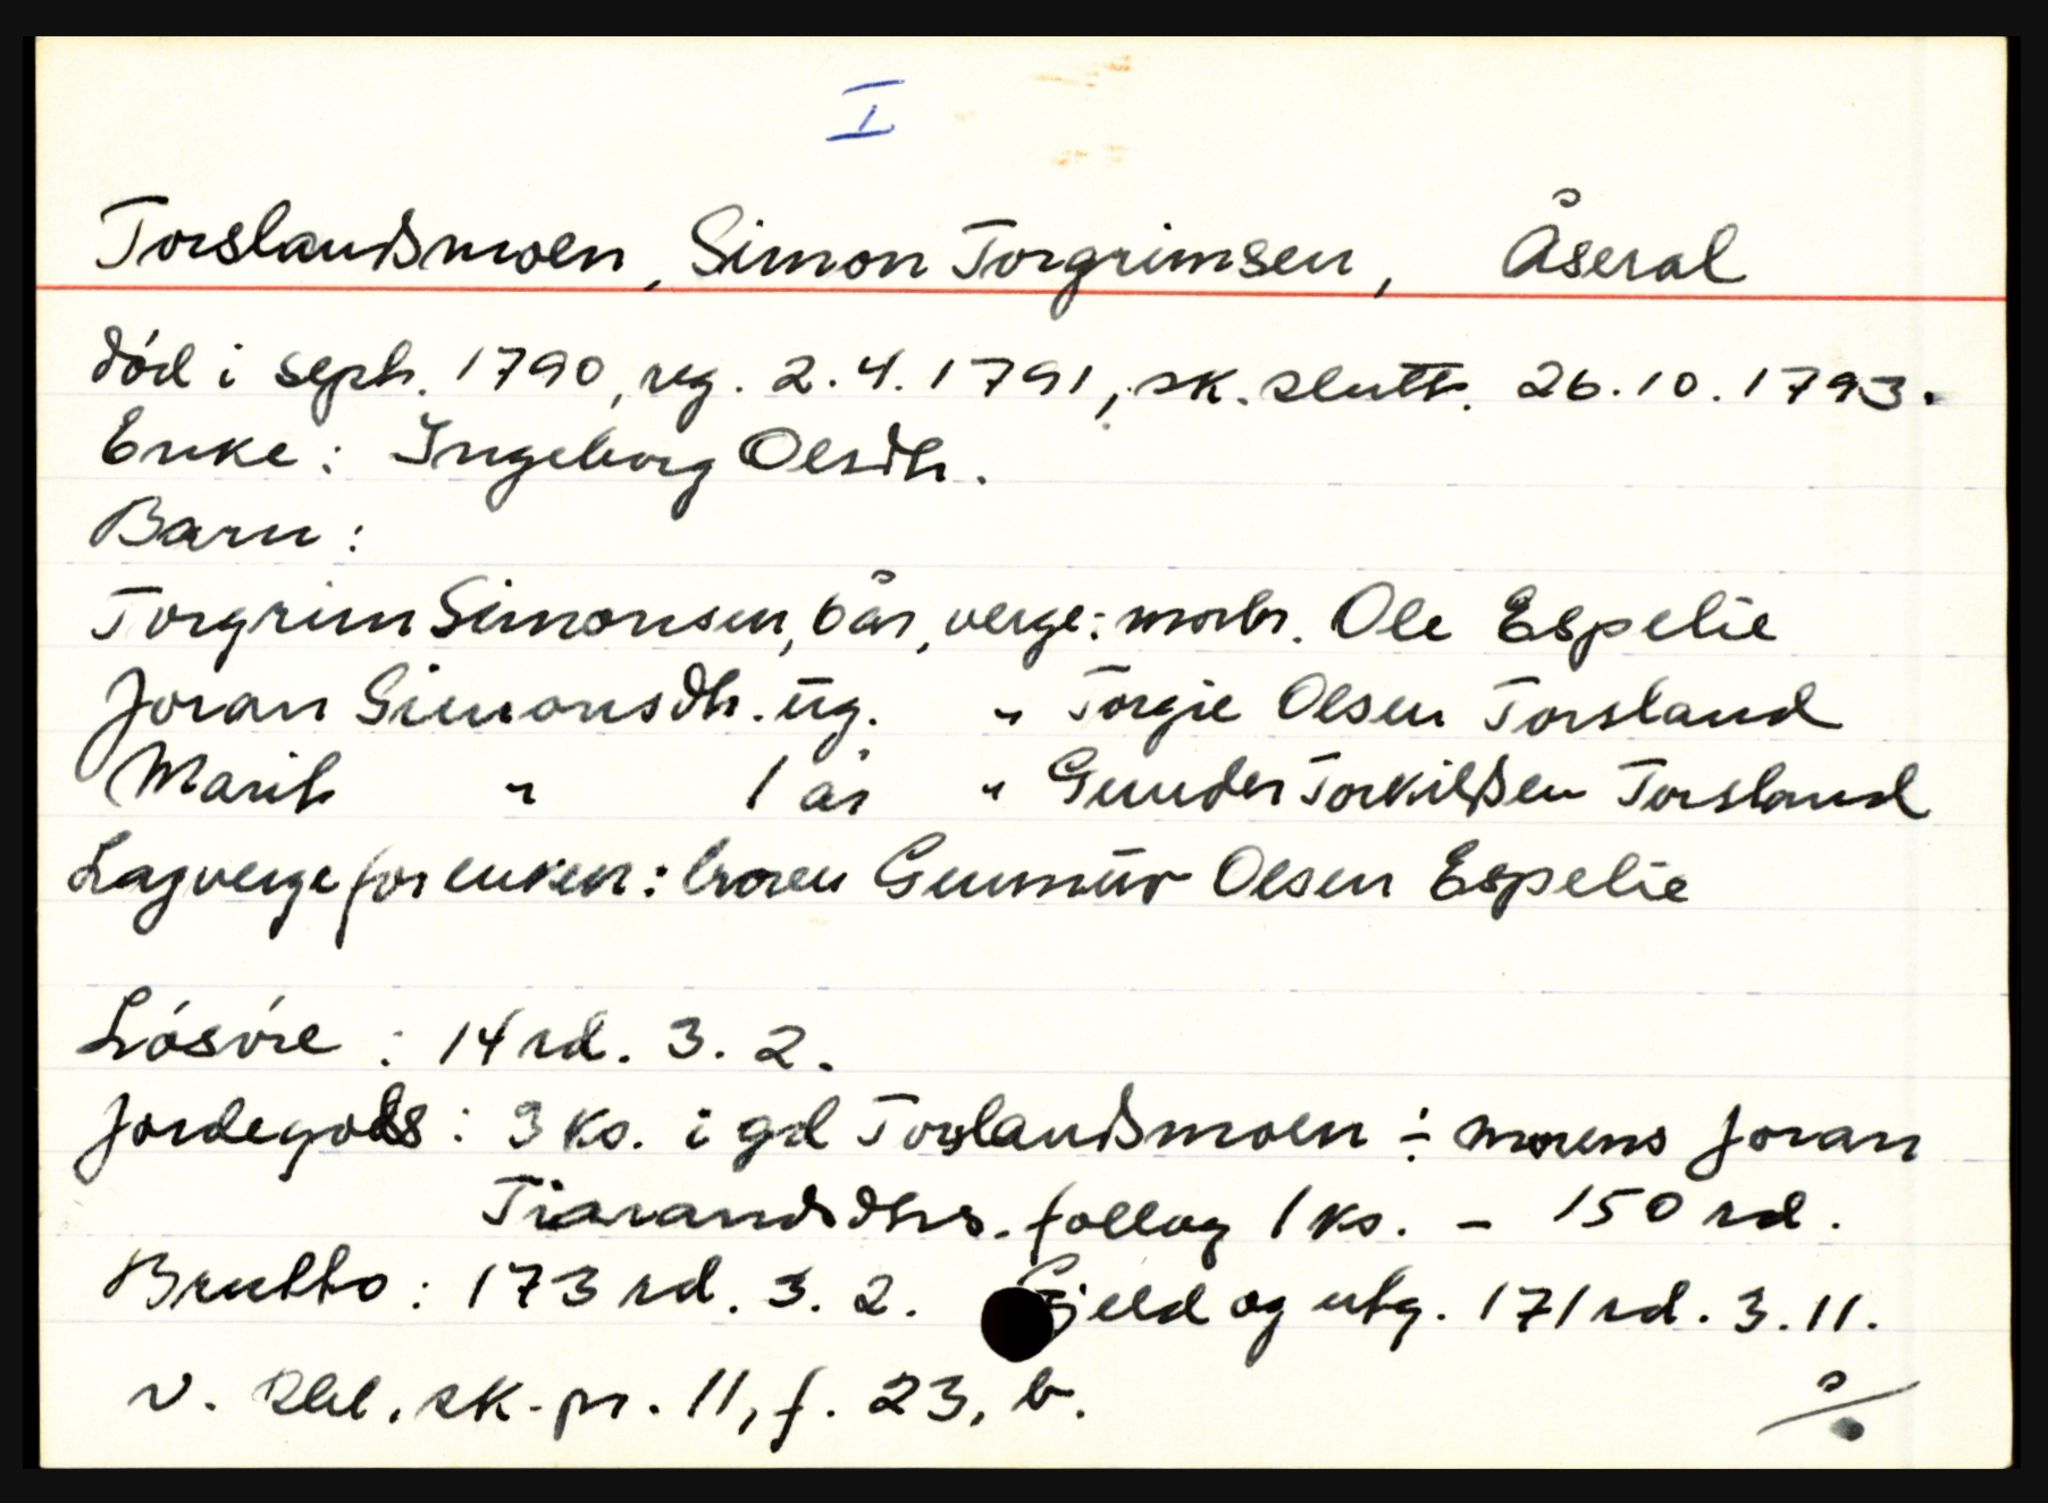 I
Torslandsmoen, Simon Torgrimsen, Åseral
död i sept. 1790, reg. 2.4.1791, sk. slutt. 26.10.1793.
Enke: Ingeborg Olsdtr.
Barn:
Torgrim Simonsen, 6 år, verge: morbr. Ole Espelie
Joran Simonsdtr. ug. " Torgie Olsen Torsland
Marit " 1 år " Gunder Torkildsen Torsland
Lagverge for enken: broren Gunnuv Olsen Espelie
Lösöre: 14 rd. 3. 2.
Jordegods: 3 ks. i gd Torslandsmoen ÷ morens Joran
Tiarandsdtrs. follog 1 ks. - 150 rd.
Brutto: 173 rd. 3. 2. Gjeld og utg. 171 rd. 3. 11.
v. Rbl. sk. pr. 11, f. 23, b.